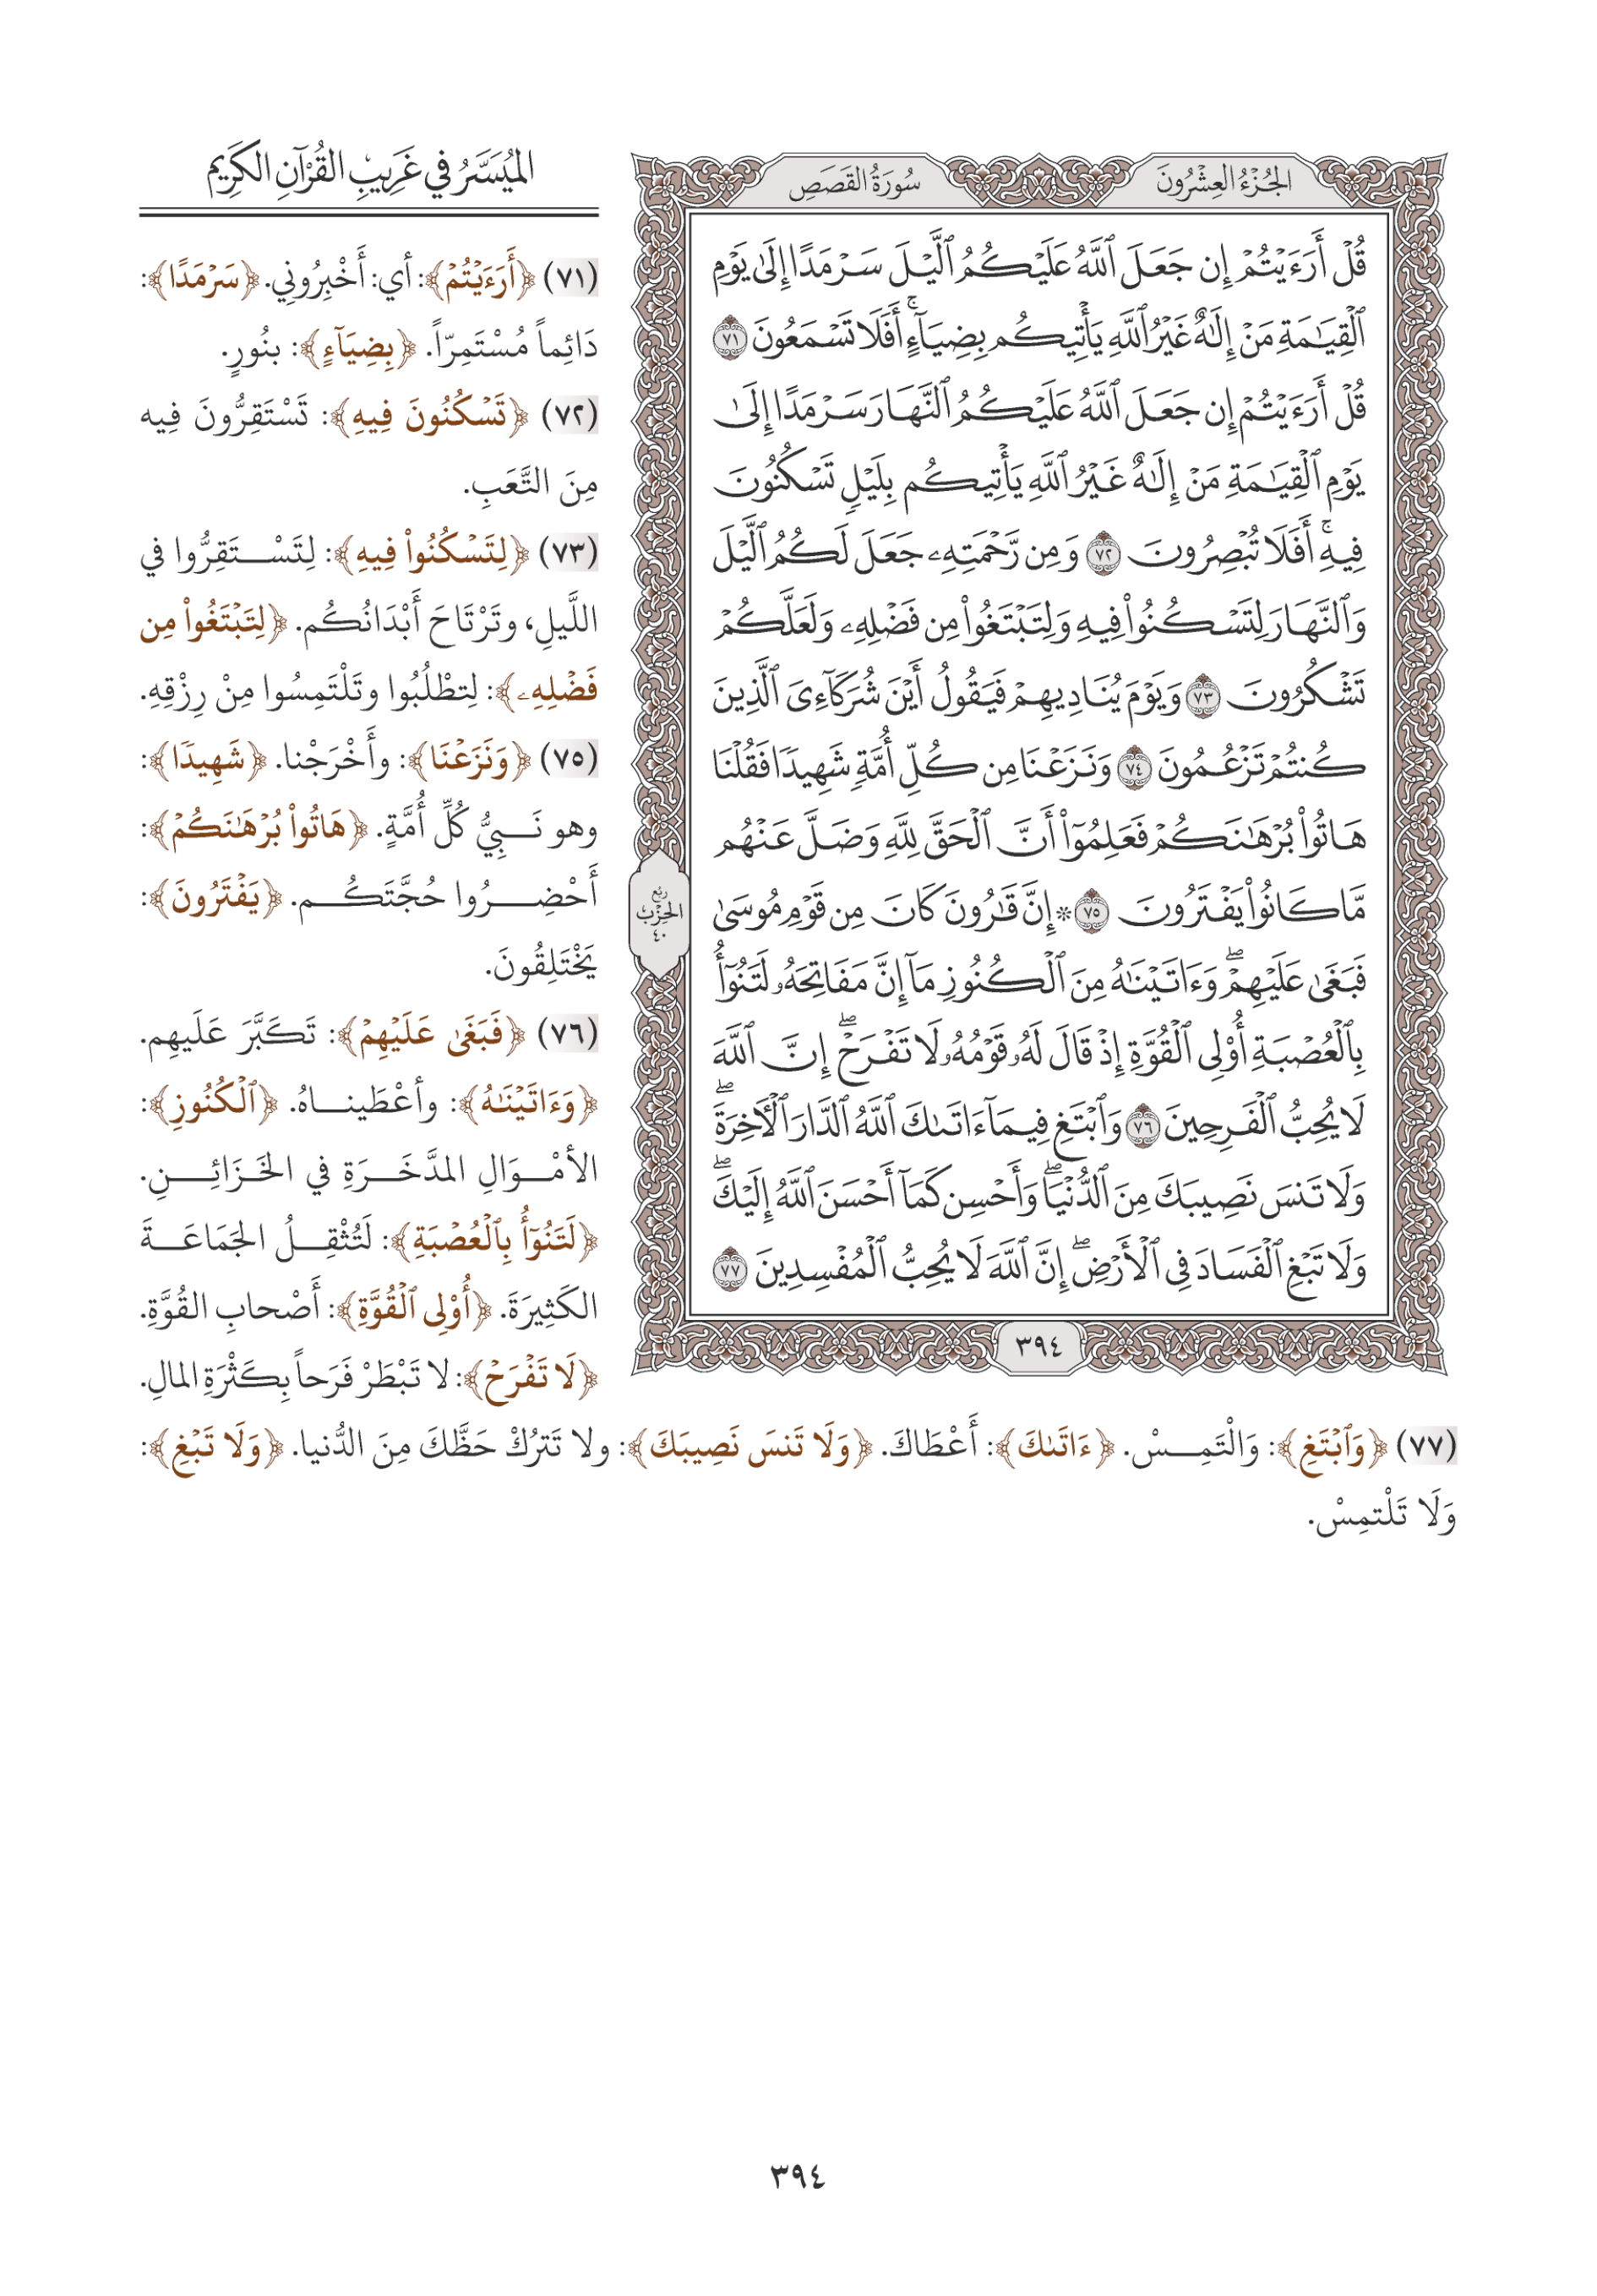 الجُزْءُ العِشْرُونَ
سُورَةُ القَصَصِ
قُلْ أَرَءَيْتُمْ إِن جَعَلَ ٱللَّهُ عَلَيْكُمُ ٱلَّيْلَ سَرْمَدًا إِلَىٰ يَوْمِ
ٱلْقِيَٰمَةِ مَنْ إِلَٰهٌ غَيْرُ ٱللَّهِ يَأْتِيكُم بِضِيَآءٍ ۚ أَفَلَا تَسْمَعُونَ ٧١
قُلْ أَرَءَيْتُمْ إِن جَعَلَ ٱللَّهُ عَلَيْكُمُ ٱلنَّهَارَ سَرْمَدًا إِلَىٰ
يَوْمِ ٱلْقِيَٰمَةِ مَنْ إِلَٰهٌ غَيْرُ ٱللَّهِ يَأْتِيكُم بِلَيْلٍ تَسْكُنُونَ
فِيهِ ۚ أَفَلَا تُبْصِرُونَ ٧٢ وَمِن رَّحْمَتِهِۦ جَعَلَ لَكُمُ ٱلَّيْلَ
وَٱلنَّهَارَ لِتَسْكُنُوا۟ فِيهِ وَلِتَبْتَغُوا۟ مِن فَضْلِهِۦ وَلَعَلَّكُمْ
تَشْكُرُونَ ٧٣ وَيَوْمَ يُنَادِيهِمْ فَيَقُولُ أَيْنَ شُرَكَآءِىَ ٱلَّذِينَ
كُنتُمْ تَزْعُمُونَ ٧٤ وَنَزَعْنَا مِن كُلِّ أُمَّةٍ شَهِيدًا فَقُلْنَا
هَاتُوا۟ بُرْهَٰنَكُمْ فَعَلِمُوٓا۟ أَنَّ ٱلْحَقَّ لِلَّهِ وَضَلَّ عَنْهُم
مَّا كَانُوا۟ يَفْتَرُونَ ٧٥ ۞ إِنَّ قَٰرُونَ كَانَ مِن قَوْمِ مُوسَىٰ
فَبَغَىٰ عَلَيْهِمْ ۖ وَءَاتَيْنَٰهُ مِنَ ٱلْكُنُوزِ مَآ إِنَّ مَفَاتِحَهُۥ لَتَنُوٓأُ
بِٱلْعُصْبَةِ أُو۟لِى ٱلْقُوَّةِ إِذْ قَالَ لَهُۥ قَوْمُهُۥ لَا تَفْرَحْ ۖ إِنَّ ٱللَّهَ
لَا يُحِبُّ ٱلْفَرِحِينَ ٧٦ وَٱبْتَغِ فِيمَآ ءَاتَىٰكَ ٱللَّهُ ٱلدَّارَ ٱلْـَٔاخِرَةَ ۖ
وَلَا تَنسَ نَصِيبَكَ مِنَ ٱلدُّنْيَا ۖ وَأَحْسِن كَمَآ أَحْسَنَ ٱللَّهُ إِلَيْكَ ۖ
وَلَا تَبْغِ ٱلْفَسَادَ فِى ٱلْأَرْضِ ۖ إِنَّ ٱللَّهَ لَا يُحِبُّ ٱلْمُفْسِدِينَ ٧٧
ربع
الحزب
٤٠
٣٩٤
المُيَسَّرُ في غَرِيبِ القُرْآنِ الكَرِيمِ
(٧١) ﴿أَرَءَيْتُمْ﴾: أي: أَخْبِرُونِي. ﴿سَرْمَدًا﴾:
دَائِماً مُسْتَمِرّاً. ﴿بِضِيَآءٍ﴾: بنُورٍ.
(٧٢) ﴿تَسْكُنُونَ فِيهِ﴾: تَسْتَقِرُّونَ فِيه
مِنَ التَّعَبِ.
(٧٣) ﴿لِتَسْكُنُوا۟ فِيهِ﴾: لِتَسْتَقِرُّوا في
اللَّيلِ، وتَرْتَاحَ أَبْدَانُكُم. ﴿لِتَبْتَغُوا۟ مِن
فَضْلِهِۦ﴾: لِتطْلُبُوا وتَلْتَمِسُوا مِنْ رِزْقِهِ.
(٧٥) ﴿وَنَزَعْنَا﴾: وأَخْرَجْنا. ﴿شَهِيدًا﴾:
وهو نَبِيُّ كُلِّ أُمَّةٍ. ﴿هَاتُوا۟ بُرْهَٰنَكُمْ﴾:
أَحْضِرُوا حُجَّتَكُم. ﴿يَفْتَرُونَ﴾:
يَخْتَلِقُونَ.
(٧٦) ﴿فَبَغَىٰ عَلَيْهِمْ﴾: تَكَبَّرَ عَلَيهِم.
﴿وَءَاتَيْنَٰهُ﴾: وأعْطَيناهُ. ﴿ٱلْكُنُوزِ﴾:
الأمْوَالِ المدَّخَرَةِ في الخَزَائِنِ.
﴿لَتَنُوٓأُ بِٱلْعُصْبَةِ﴾: لَتُثْقِلُ الجَمَاعَةَ
الكَثِيرَةَ. ﴿أُو۟لِى ٱلْقُوَّةِ﴾: أَصْحابِ القُوَّةِ.
﴿لَا تَفْرَحْ﴾: لا تَبْطَرْ فَرَحاً بِكَثْرَةِ المالِ.
(٧٧) ﴿وَٱبْتَغِ﴾: وَالْتَمِسْ. ﴿ءَاتَىٰكَ﴾: أَعْطَاكَ. ﴿وَلَا تَنسَ نَصِيبَكَ﴾: ولا تَترُكْ حَظَّكَ مِنَ الدُّنيا. ﴿وَلَا تَبْغِ﴾:
وَلَا تَلْتمِسْ.
٣٩٤